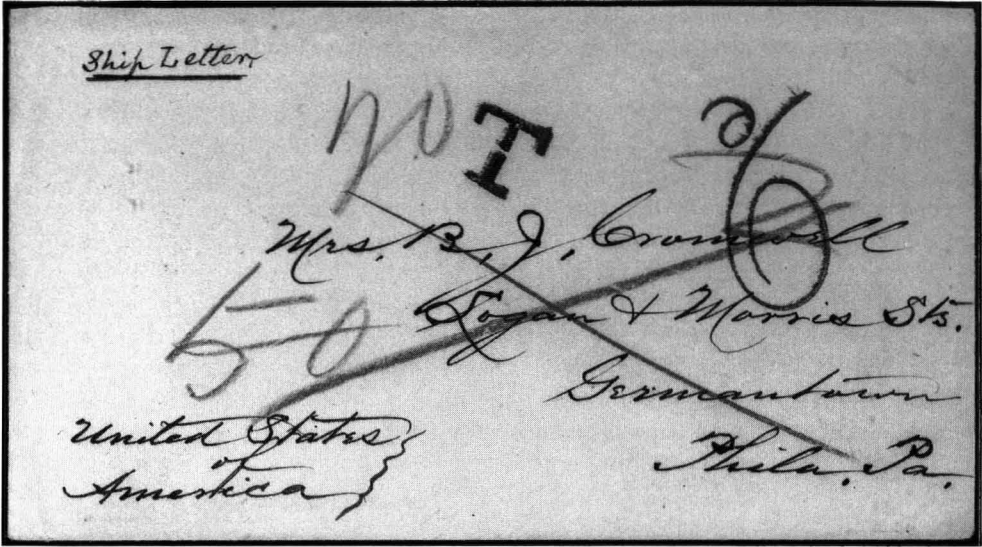 Ship Letter
20 T
Mrs. B. J. Cromwell
Logan & Morris Sts.
50
Germantown
Phila. Pa.
United States
of
America